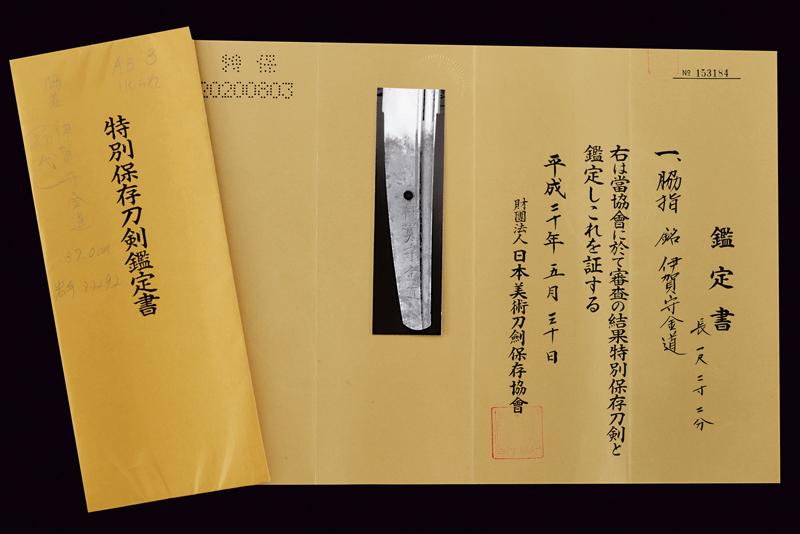 特別保存刀剣鑑定書
特保
20200803
№ 153184
鑑定書
一、脇指 銘 伊賀守金道
長 一尺二寸二分
右は當協會に於て審査の結果特別保存刀剣と
鑑定しこれを証する
平成二十年五月三十日
財團法人 日本美術刀劍保存協會